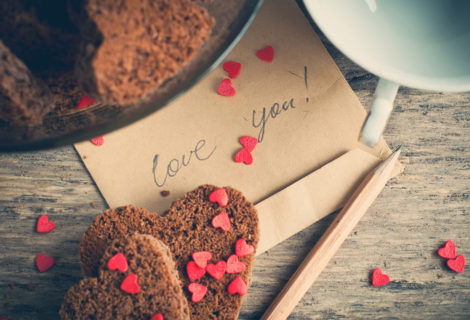 love you!